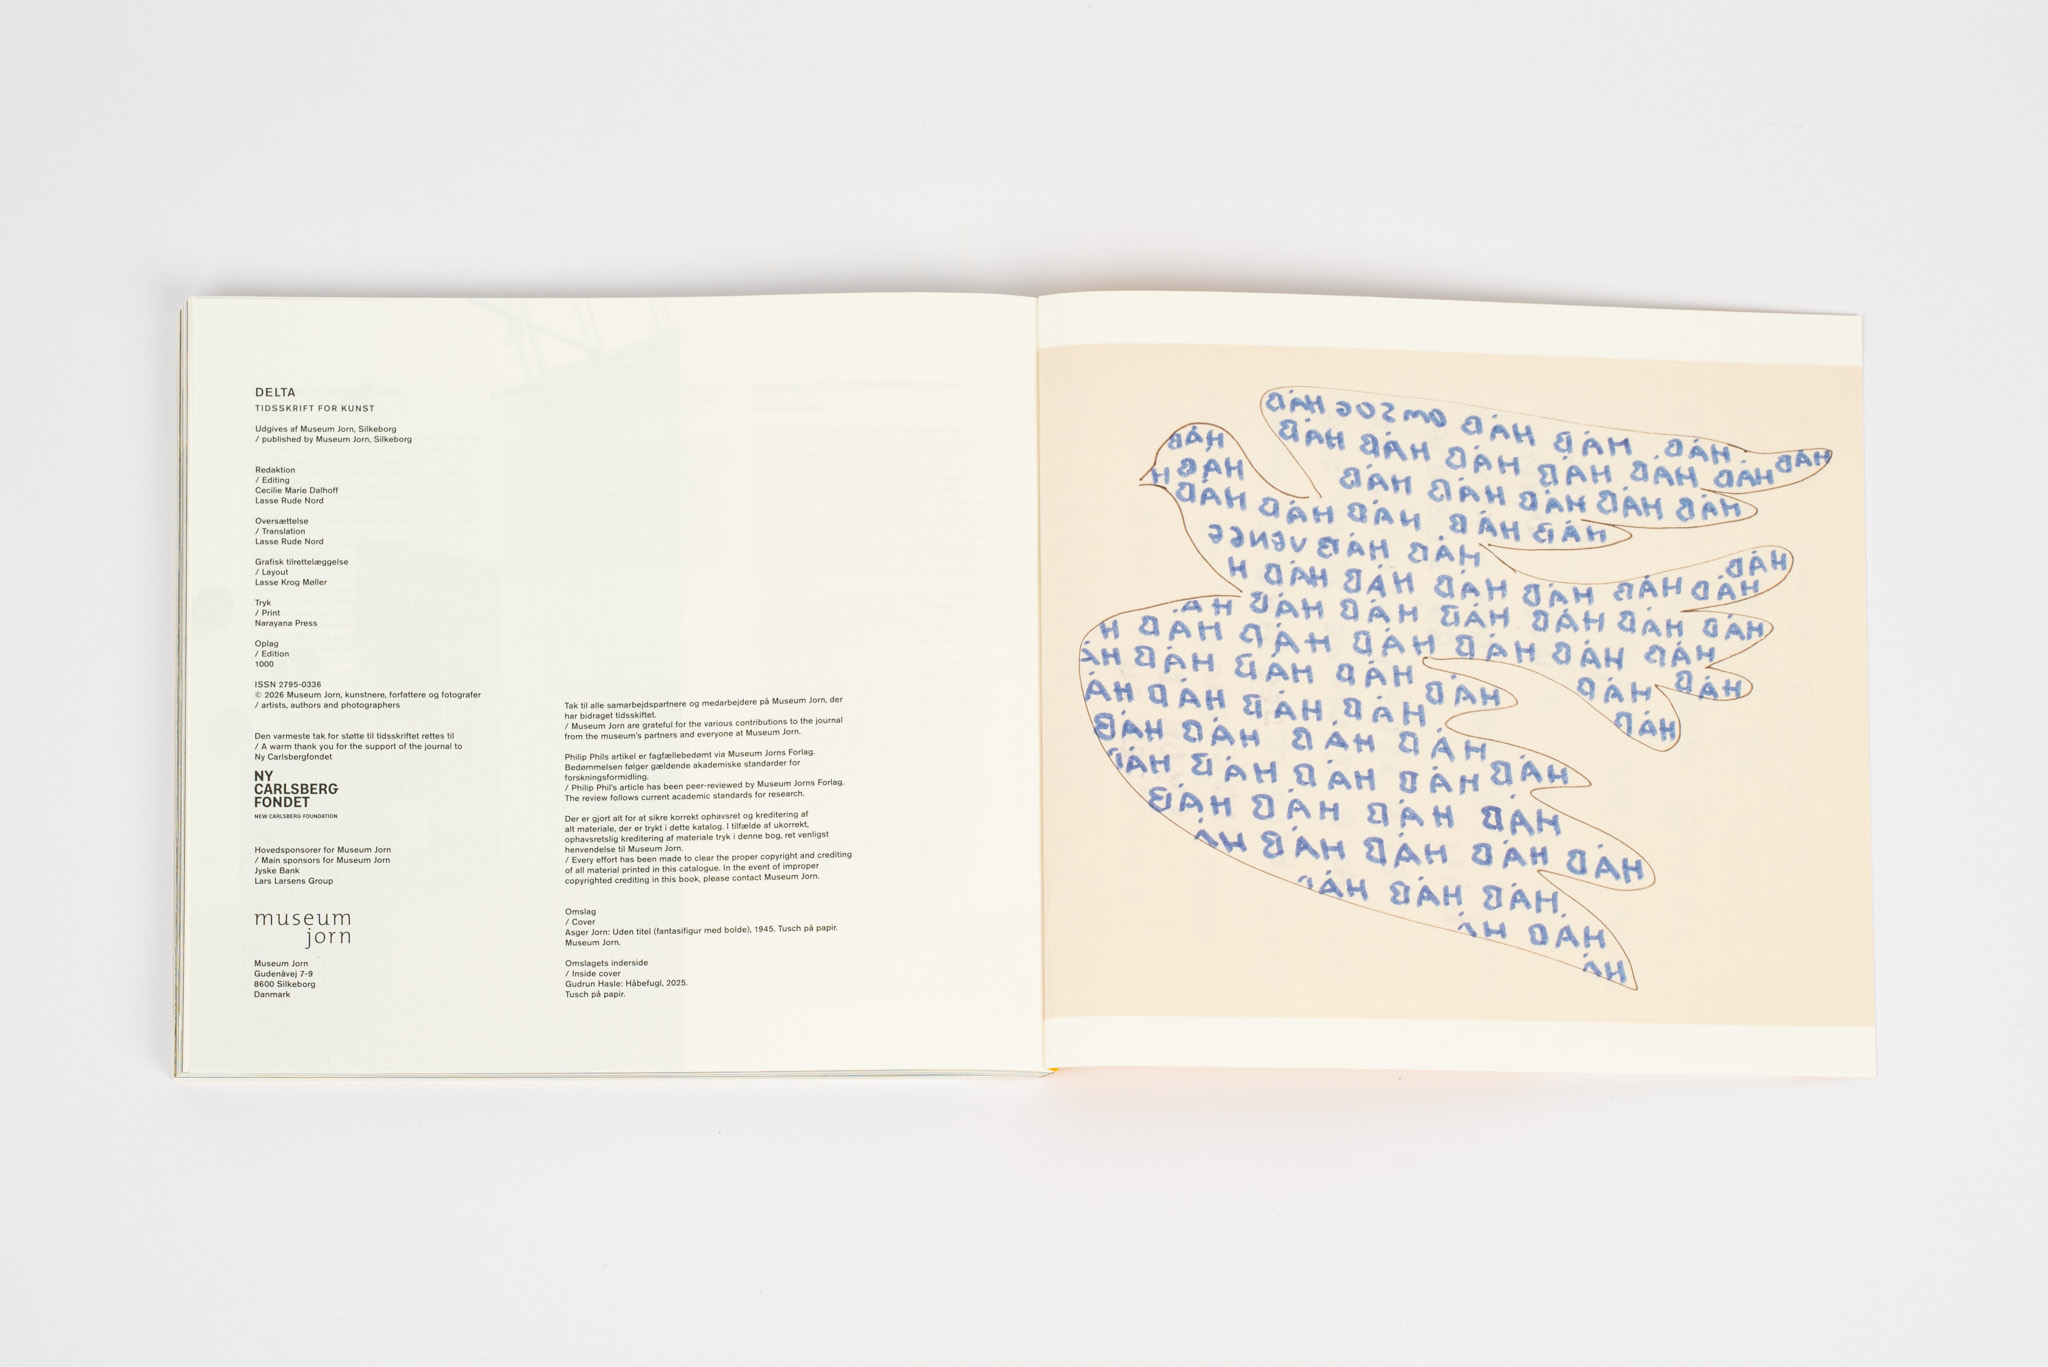 DELTA
TIDSSKRIFT FOR KUNST
Udgives af Museum Jorn, Silkeborg
/ published by Museum Jorn, Silkeborg
Redaktion
/ Editing
Cecilie Marie Dalhoff
Lasse Rude Nord
Oversættelse
/ Translation
Lasse Rude Nord
Grafisk tilrettelæggelse
/ Layout
Lasse Krog Møller
Tryk
/ Print
Narayana Press
Oplag
/ Edition
1000
ISSN 2795-0336
© 2026 Museum Jorn, kunstnere, forfattere og fotografer
/ artists, authors and photographers
Den varmeste tak for støtte til tidsskriftet rettes til
/ A warm thank you for the support of the journal to
Ny Carlsbergfondet
NY
CARLSBERG
FONDET
NEW CARLSBERG FOUNDATION
Hovedsponsorer for Museum Jorn
/ Main sponsors for Museum Jorn
Jyske Bank
Lars Larsens Group
museum
jorn
Museum Jorn
Gudenåvej 7-9
8600 Silkeborg
Danmark
Tak til alle samarbejdspartnere og medarbejdere på Museum Jorn, der
har bidraget tidsskiftet.
/ Museum Jorn are grateful for the various contributions to the journal
from the museum's partners and everyone at Museum Jorn.
Philip Phils artikel er fagfællebedømt via Museum Jorns Forlag.
Bedømmelsen følger gældende akademiske standarder for
forskningsformidling.
/ Philip Phil's article has been peer-reviewed by Museum Jorns Forlag.
The review follows current academic standards for research.
Der er gjort alt for at sikre korrekt ophavsret og kreditering af
alt materiale, der er trykt i dette katalog. I tilfælde af ukorrekt,
ophavsretslig kreditering af materiale tryk i denne bog, ret venligst
henvendelse til Museum Jorn.
/ Every effort has been made to clear the proper copyright and crediting
of all material printed in this catalogue. In the event of improper
copyrighted crediting in this book, please contact Museum Jorn.
Omslag
/ Cover
Asger Jorn: Uden titel (fantasifigur med bolde), 1945. Tusch på papir.
Museum Jorn.
Omslagets inderside
/ Inside cover
Gudrun Hasle: Håbefugl, 2025.
Tusch på papir.
HÅB HÅB HÅB HÅB HÅB
HÅB HÅB HÅB HÅB HÅB HÅB
HÅB HÅB HÅB HÅB HÅB
HÅB
H HÅB
HÅB HÅB HÅB HÅB HÅB
HÅB HÅB
H HÅB HÅB HÅB HÅB HÅB HÅB HÅB
ÅH HÅB HÅB HÅB HÅB HÅB HÅB
H HÅB HÅB HÅB HÅB HÅB HÅB
ÅH HÅB HÅB HÅB HÅB HÅB
ÅH HÅB HÅB HÅB HÅB HÅB
HÅB HÅB HÅB HÅB
HÅB HÅB HÅB HÅB HÅB
HÅB HÅB HÅB HÅB
ÅH HÅB HÅB HÅB HÅB
HÅB HÅB HÅB
ÅH HÅB
ÅH